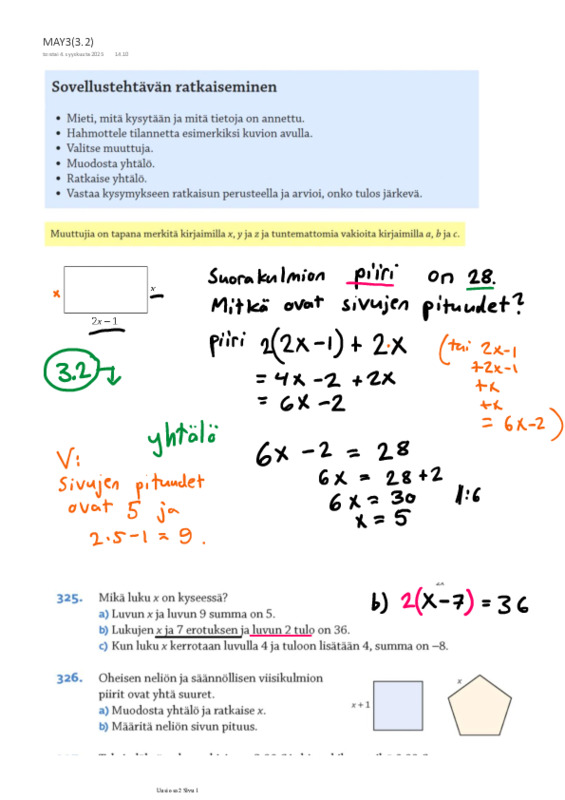 MAY3(3.2)
14.10
Sovellustehtävän ratkaiseminen
• Mieti, mitä kysytään ja mitä tietoja on annettu.
• Hahmottele tilannetta esimerkiksi kuvion avulla.
• Valitse muuttuja.
• Muodosta yhtälö.
• Ratkaise yhtälö.
• Vastaa kysymykseen ratkaisun perusteella ja arvioi, onko tulos järkevä.
Muuttujia on tapana merkitä kirjaimilla x, y ja z ja tuntemattomia vakioita kirjaimilla a, b ja c.
x
x
2x − 1
Suorakulmion piiri on 28.
Mitkä ovat sivujen pituudet?
piiri 2(2x−1) + 2·x
= 4x − 2 + 2x
= 6x − 2
(tai 2x−1
+2x−1
+x
+x
= 6x−2)
3.2
yhtälö
6x − 2 = 28
6x = 28+2
6x = 30 |:6
x = 5
V:
Sivujen pituudet
ovat 5 ja
2·5−1 = 9.
325. Mikä luku x on kyseessä?
a) Luvun x ja luvun 9 summa on 5.
b) Lukujen x ja 7 erotuksen ja luvun 2 tulo on 36.
c) Kun luku x kerrotaan luvulla 4 ja tuloon lisätään 4, summa on −8.
b) 2(x−7) = 36
326. Oheisen neliön ja säännöllisen viisikulmion
piirit ovat yhtä suuret.
a) Muodosta yhtälö ja ratkaise x.
b) Määritä neliön sivun pituus.
x + 1
x